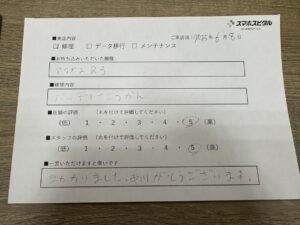 スマホスピタル
■来店内容
ご来店日：2025年6月8日
☑ 修理 ☐ データ移行 ☐ メンテナンス
■お持ち込みいただいた機種
■修理内容
バッテリーこうかん
■店舗の評価 (丸を付けて評価してください)
(低) 1 ・ 2 ・ 3 ・ 4 ・ 5 (高)
■スタッフの評価 (丸を付けて評価してください)
(低) 1 ・ 2 ・ 3 ・ 4 ・ 5 (高)
■一言いただけますと幸いです
たすかりました。ありがとうございます。